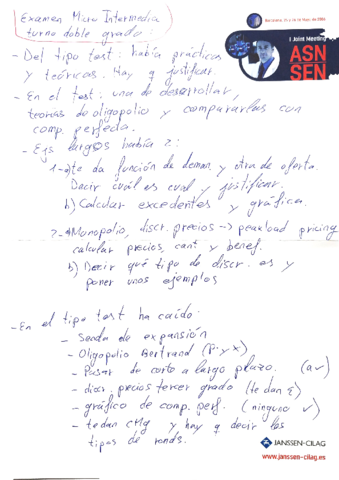 Examen Micro Intermedia
turno doble grado:
Barcelona, 10 a 13 de Mayo, de 2006
I Joint Meeting
ASN
SEN
- Del tipo test: había prácticas
y teóricas. Hay q justificar.
- En el test: una de desarrollar,
teorías de oligopolio y compararlas con
comp. perfecta.
- Ejs largos había 2:
1 → a) te da función de deman. y otra de oferta.
Decir cuál es cual y justificar.
b) Calcular excedentes y gráfica.
2 - a) Monopolio, discr. precios → peakload pricing
calcular precios, cant y benef.
b) Decir qué tipo de discr. es y
poner unos ejemplos
- En el tipo test ha caído:
- Senda de expansión
- Oligopolio Bertrand (P y x)
- Pasar de corto a largo plazo. (a v)
- discr. precios tercer grado (te dan ε)
- gráfico de comp. perf. (ninguno v)
- te dan CMg y hay q decir los
tipos de rends.
JANSSEN-CILAG
www.janssen-cilag.es